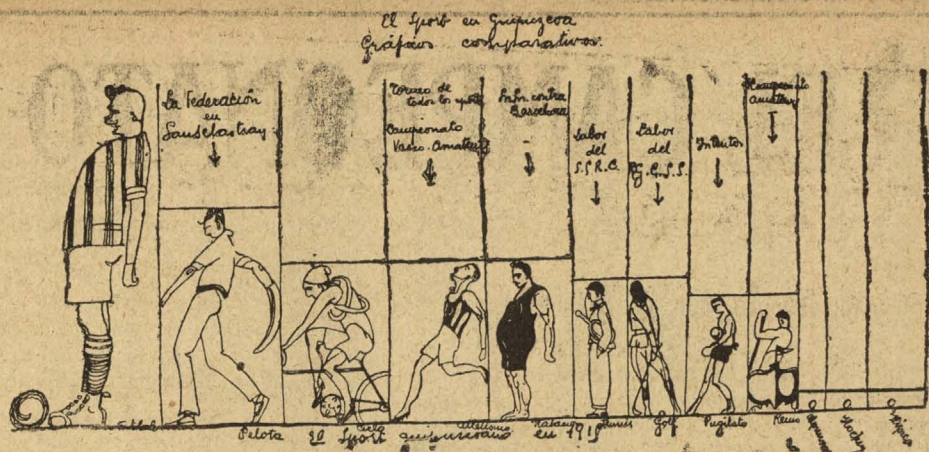 El Sport en Guipuzcoa
Gráficos comparativos.
La Federación
en
Torneo de
todos los sports
Campeonato
Vasco-Amateur
contra
Barcelona
Labor
del
S.S.R.C.
Labor
del
R.G.C.S.S.
Campeonato
amateur
Pelota
Ciclo
Atletismo
Natacion
Tennis
Golf
Pugilato
Remo
Hockey
El Sport guipuzcoano
en 1919